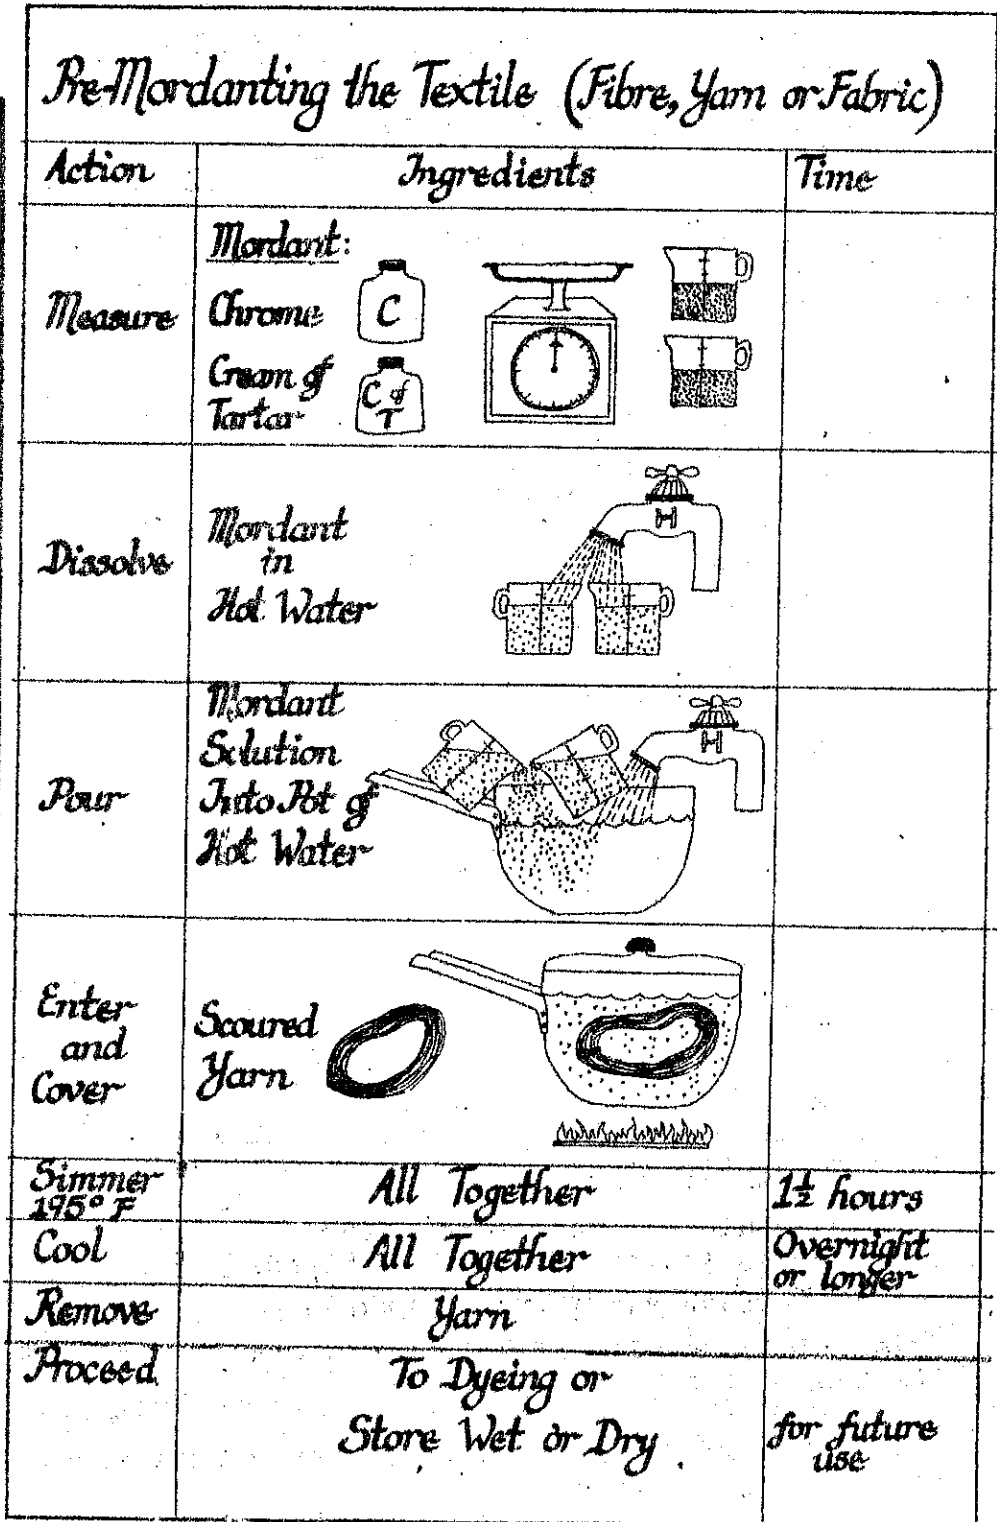 Pre-Mordanting the Textile (Fibre, Yarn or Fabric)
Action Ingredients Time
Measure
Mordant:
Chrome
C
Cream of
Tartar
C of
T
Dissolve
Mordant
in
Hot Water
H
Pour
Mordant
Solution
Into Pot of
Hot Water
H
Enter
and
Cover
Scoured
Yarn
Simmer
195° F
All Together
1½ hours
Cool
All Together
Overnight
or longer
Remove
Yarn
Proceed
To Dyeing or
Store Wet or Dry
for future
use